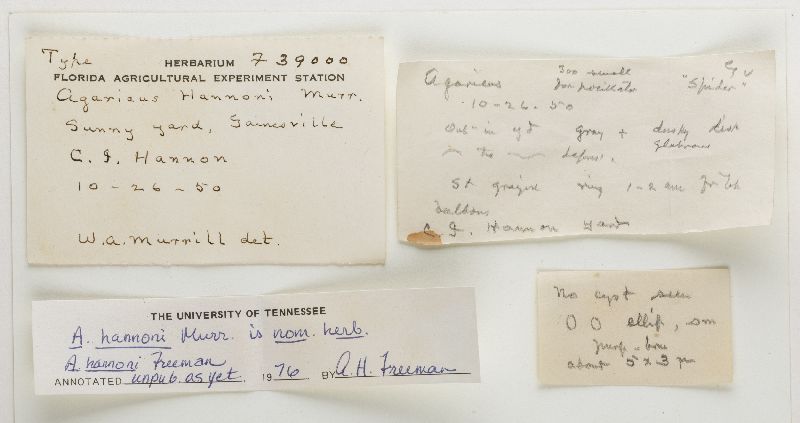 Type HERBARIUM F 39000
FLORIDA AGRICULTURAL EXPERIMENT STATION
Agaricus Hannoni Murr.
Sunny yard, Gainesville
C. J. Hannon
10-26-50
W. A. Murrill det.
Agaricus too small "Spider"
10-26-50
in yd gray + dusky disk
glabrous
ring 1-2 cm
bulbous
C. J. Hannon yard
THE UNIVERSITY OF TENNESSEE
A. hannoni Murr. is nom. herb.
A. hannoni Freeman
ANNOTATED unpub. as yet. 1976 BY A. H. Freeman
No cyst seen
00 ellip, sm
purp-brn
about 5 x 3